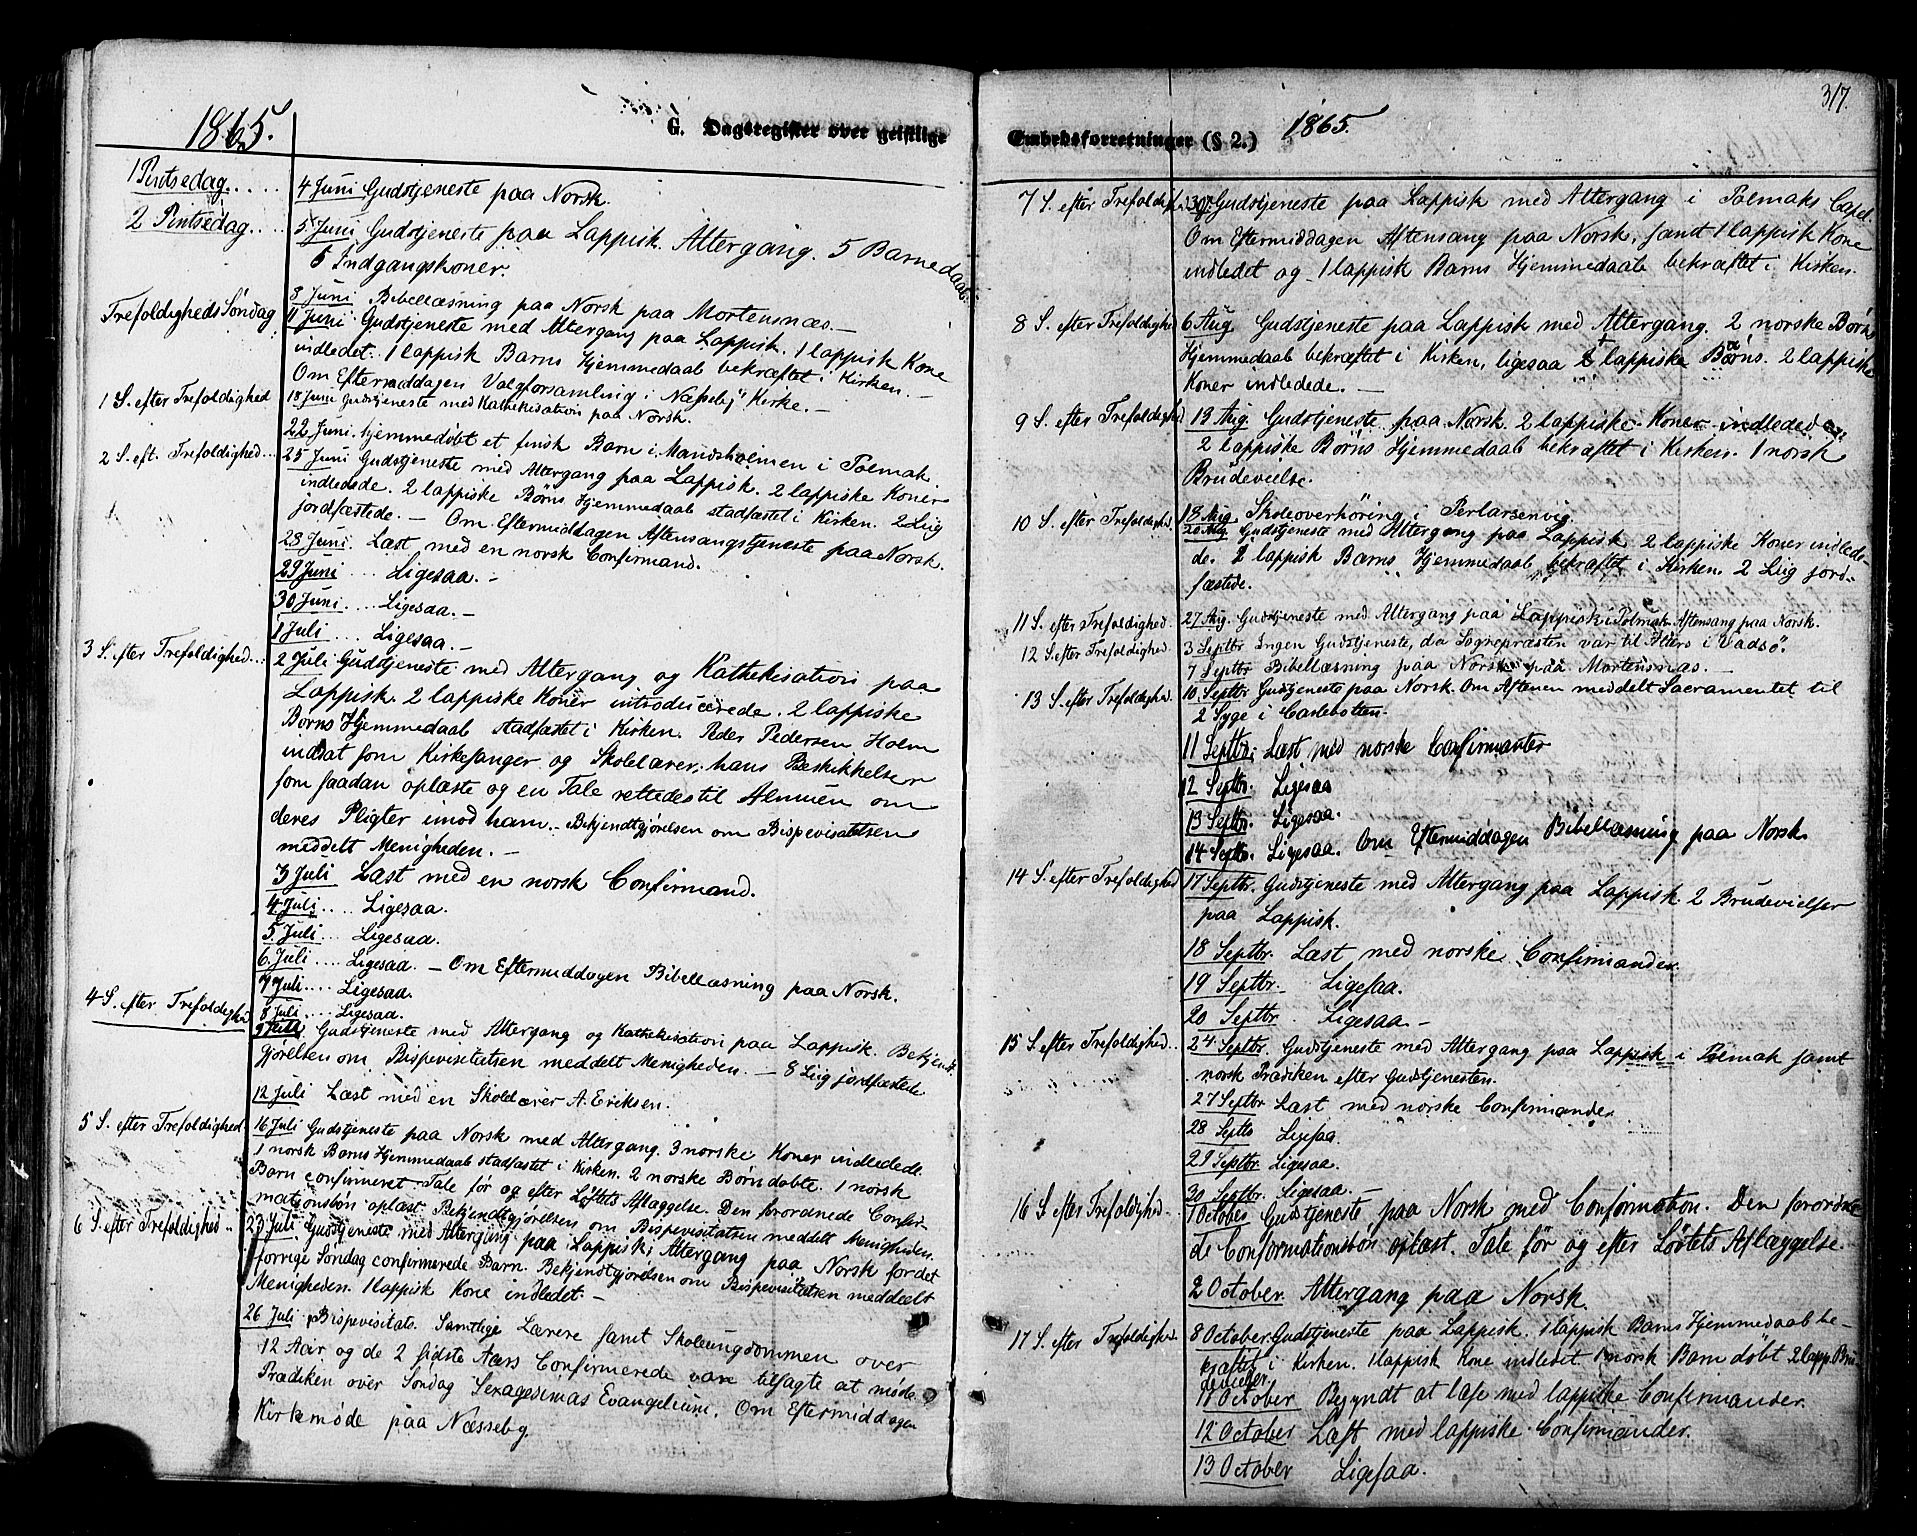 1865.
G. Dagsregister over geistlige
1 Pintsedag.....
4 Juni Gudstjeneste paa Norsk.
2 Pintsedag....
5 Juni Gudstjeneste paa Lappisk. Altergang. 5 Barnedaab.
5 Indgangskoner.
8 Juni Bibellæsning paa Norsk paa Mortensnæs.—
Trefoldigheds Søndag
11 Juni Gudstjeneste med Altergang paa Lappisk. 1 lappisk Kone
indledet. 1 lappisk Barns Hjemmedaab bekræftet i Kirken.—
Om Eftermiddagen Valgforsamling i Næsseby Kirke.—
1 S. efter Trefoldighed
18 Juni Gudstjeneste med Kathekisation paa Norsk.
22 Juni. hjemmedøbt et finsk Barn i Mandsholmen i Polmak.
2 S. eft. Trefoldighed...
25 Juni Gudstjeneste med Altergang paa Lappisk. 2 lappiske Koner
indledede. 2 lappiske Børns Hjemmedaab stadfæstet i Kirken. 2 Liig
jordfæstede. — Om Eftermiddagen Aftensangstjeneste paa Norsk.
28 Juni. Læst med en norsk Confirmand.
29 Juni .... Ligesaa.—
30 Juni .... Ligesaa.—
1 Juli .... Ligesaa.—
3 S. efter Trefoldighed...
2 Juli Gudstjeneste med Altergang og Kathekisation paa
Lappisk. 2 lappiske Koner introducerede. 2 lappiske
Børns Hjemmedaab stadfæstet i Kirken. Peder Pedersen Holm
indsat som Kirkesanger og Skolelærer, hans Beskikkelse
som saadan oplæste og en Tale rettedes til Almuen om
deres Pligter imod ham.— Bekjendtgjørelsen om Bispevisitatsen
meddelt Menigheden.—
3 Juli Læst med en norsk Confirmand.
4 Juli .... Ligesaa.
5 Juli .... Ligesaa.
6 Juli .... Ligesaa. — Om Eftermiddagen Bibellæsning paa Norsk.
7 Juli .... Ligesaa.
8 Juli .... Ligesaa.
4 S. efter Trefoldighed
9 Juli Gudstjeneste med Altergang og Kathekisation paa Lappisk. Bekjendt-
gjørelsen om Bispevisitatsen meddelt Menigheden. — 8 Liig jordfæstede
12 Juli Læst med en Skolelærer A. Eriksen.
5 S. efter Trefoldighed
16 Juli Gudstjeneste paa Norsk med Altergang. 3 norske Koner indledede.
1 norsk Barns Hjemmedaab stadfæstet i Kirken. 2 norske Børn døbte. 1 norsk
Barn confirmeret. Tale før og efter Løftets Aflæggelse. Den forordnede Confir-
mationsbøn oplæst. Bekjendtgjørelsen om Bispevisitatsen meddelt Menigheden.
6 S. efter Trefoldighed..
23 Juli Gudstjeneste med Altergang paa Lappisk; Altergang paa Norsk for det
forrige Søndag confirmerede Barn. Bekjendtgjørelsen om Bispevisitatsen meddeelt
Menigheden. 1 lappisk Kone indledet.—
26 Juli Bispevisitats. Samtlige Lærere samt Skoleungdommen over
12 Aar og de 2 sidste Aars Confirmerede vare tilsagte at møde.
Prædiken over Søndag Sexagesimas Evangelium. Om Eftermiddagen
Kirkemøde paa Næsseby.
317.
1865.
Embedsforretninger (§ 2.)
7 S. efter Trefoldigh.
30 Juli Gudstjeneste paa Lappisk med Altergang i Polmaks Capel.
Om Eftermiddagen Aftensang paa Norsk, samt 1 lappisk Kone
indledet og 1 lappisk Barns Hjemmedaab bekræftet i Kirken.
8 S. efter Trefoldighed
6 Aug. Gudstjeneste paa Lappisk med Altergang. 2 norske Børns
Hjemmedaab bekræftet i Kirken, ligesaa 1 lappiske Barns. 2 lappiske
Koner indledede. —
9 S. efter Trefoldighed
13 Aug. Gudstjeneste paa Norsk. 2 lappiske Koner indledede.
2 lappiske Børns Hjemmedaab bekræftet i Kirken. 1 norsk
Brudevielse.
18 Aug. Skoleoverhøring i Perlarsenvig.
10 S. efter Trefoldighed
20 Aug. Gudstjeneste med Altergang paa Lappisk. 2 lappiske Koner indlede-
de. 1 lappisk Barns Hjemmedaab bekræftet i Kirken. 2 Liig jord-
fæstede.
11 S. efter Trefoldighed
27 Aug. Gudstjeneste med Altergang paa Lappisk i Polmak. Aftensang paa Norsk.
12 S. efter Trefoldighed
3 Septbr Ingen Gudstjeneste, da Sognepræsten var til Alters i Vadsø.
7 Septbr Bibellæsning paa Norsk paa Mortensnæs.—
13 S. efter Trefoldighed.
10 Septbr Gudstjeneste paa Norsk. Om Aftenen meddelt Sacramentet til
2 Syge i Carlebotten.
11 Septbr. Læst med norske Confirmanter
12 Septbr. Ligesaa
13 Septbr. Ligesaa.
14 Septbr. Ligesaa. Om Eftermiddagen Bibellæsning paa Norsk.
14 S. efter Trefoldighed
17 Septbr. Gudstjeneste med Altergang paa Lappisk. 2 Brudevielser
paa Lappisk.
18 Septbr. Læst med norske Confirmander.
19 Septbr. Ligesaa.
20 Septbr. Ligesaa.—
15 S. efter Trefoldighed...
24 Septbr. Gudstjeneste med Altergang paa Lappisk i Polmak samt
norsk Prædiken efter Gudstjenesten.
27 Septbr Læst med norske Confirmander.
28 Septb Ligesaa.
29 Septbr. Ligesaa.
30 Septbr. Ligesaa.—
16 S efter Trefoldighed..
1 October Gudstjeneste paa Norsk med Confirmation. Den forordne-
de Confirmationsbøn oplæst. Tale før og efter Løftets Aflæggelse.
2 October. Altergang paa Norsk.
17 S. efter Trefoldighed.
8 October. Gudstjeneste paa Lappisk. 1 lappisk Barns Hjemmedaab be-
kræftet i Kirken. 1 lappisk Kone indledet 1 norsk Barn døbt 2 lapp. Bru-
devielser
11 October Begyndt at læse med lappiske Confirmander.
12 October Læst med lappiske Confirmander.
13 October Ligesaa.